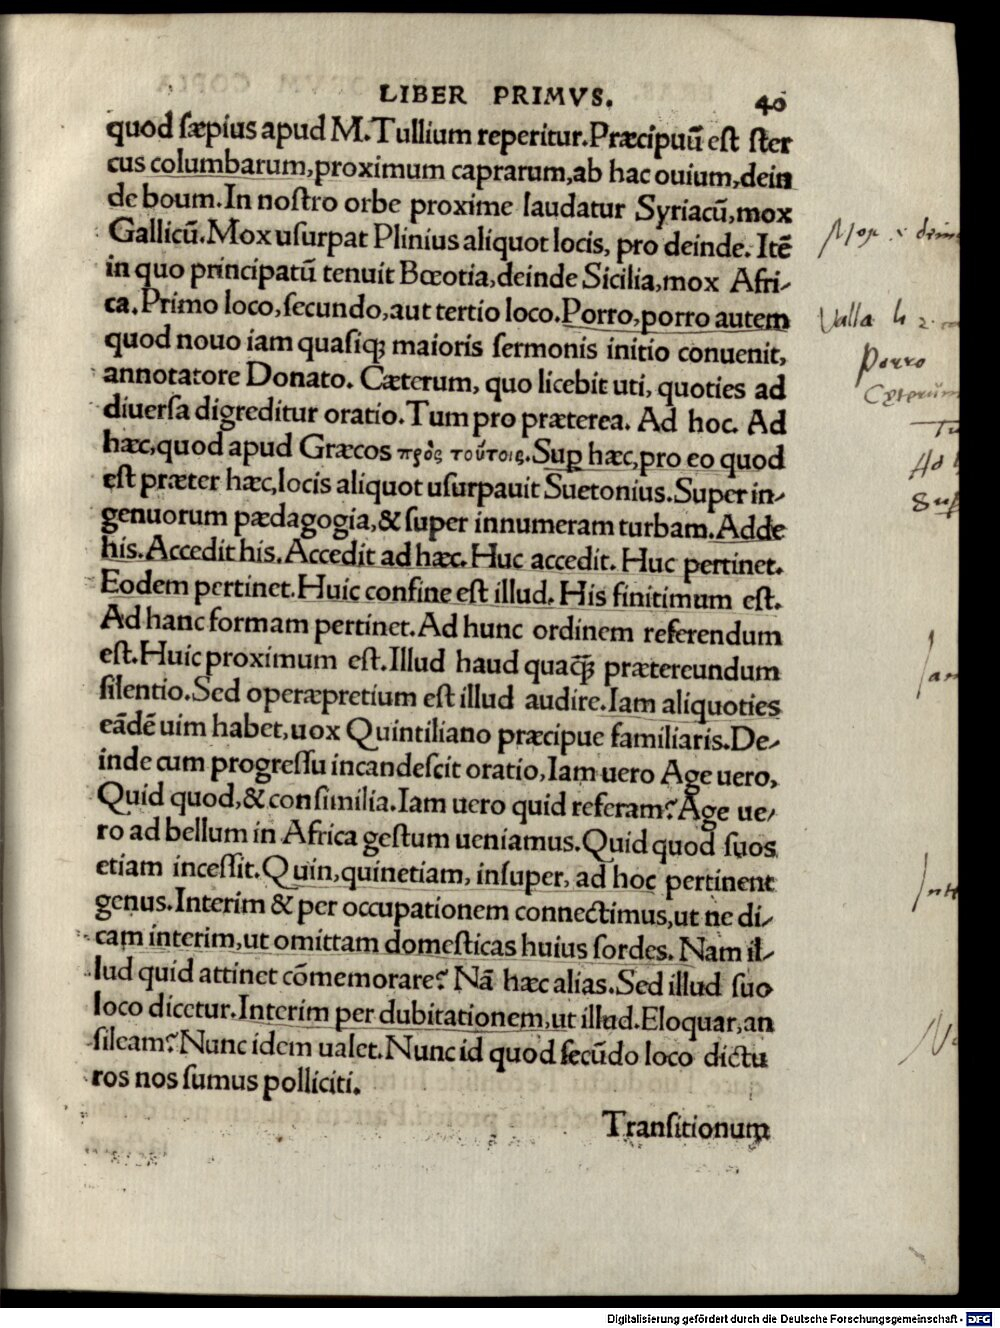 LIBER PRIMVS.
40
quod ſæpius apud M.Tullium reperitur.Præcipuū eſt ſter
cus columbarum,proximum caprarum,ab hac ouium,dein
de boum.In noſtro orbe proxime laudatur Syriacū,mox
Gallicū.Mox uſurpat Plinius aliquot locis, pro deinde. Itē
in quo principatū tenuit Bœotia,deinde Sicilia,mox Afri-
ca.Primo loco,ſecundo,aut tertio loco.Porro,porro autem
quod nouo iam quaſiq; maioris ſermonis initio conuenit,
annotatore Donato. Cæterum, quo licebit uti, quoties ad
diuerſa digreditur oratio.Tum pro præterea. Ad hoc. Ad
hæc,quod apud Græcos πρὸς τούτοις.Suꝑ hæc,pro eo quod
eſt præter hæc,locis aliquot uſurpauit Suetonius.Super in-
genuorum pædagogia,& ſuper innumeram turbam.Adde
his.Accedit his.Accedit ad hæc.Huc accedit. Huc pertinet.
Eodem pertinet.Huic confine eſt illud. His finitimum eſt.
Ad hanc formam pertinet.Ad hunc ordinem referendum
eſt.Huic proximum eſt.Illud haud quaq̄ꝫ prætereundum
ſilentio.Sed operæpretium eſt illud audire.Iam aliquoties
eādē uim habet,uox Quintiliano præcipue familiaris.De-
inde cum progreſſu incandeſcit oratio,Iam uero Age uero,
Quid quod,& conſimilia.Iam uero quid referam? Age ue-
ro ad bellum in Africa geſtum ueniamus.Quid quod ſuos
etiam inceſſit.Quin,quinetiam, inſuper, ad hoc pertinent
genus.Interim & per occupationem connectimus,ut ne di-
cam interim,ut omittam domeſticas huius ſordes. Nam il-
lud quid attinet cōmemorare? Nā hæc alias.Sed illud ſuo
loco dicetur.Interim per dubitationem,ut illud.Eloquar,an
ſileam? Nunc idem ualet.Nunc id quod ſecūdo loco dictu
ros nos ſumus polliciti.
Transitionum
Valla
Porro
Cęterum
Digitalisierung gefördert durch die Deutsche Forschungsgemeinschaft - DFG